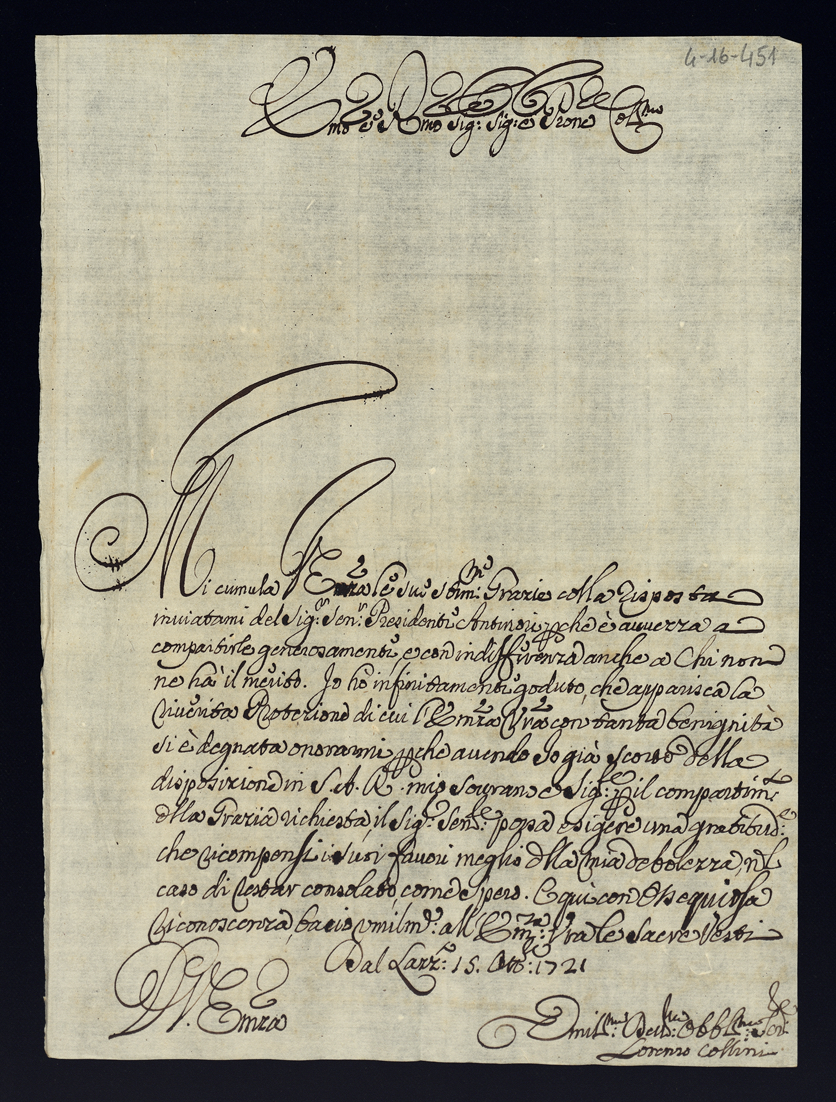 4-16-451
Emo e Rmo Sig: Sig: e Prone Col.mo
Mi cumula V. Emza le sue stim.me Grazie colla Risposta
inviatami del Sig.r Sen.r Presidente Antinori, perche è avvezza a
compartirle generosamente, e con indifferenza anche a Chi non
ne hà il merito. Io hò infinitamente goduto, che apparisca la
riverita Protezione di cui l'Emza Vra con tanta benignità
si è degnata onorarmi perche avendo Io già scorto della
disposizione in S. A. R. mio Sovrano e Sig.re per il compartim.to
della Grazia richiesta, il Sig.r Sen.re possa esigere una gratitud.e
che ricompensi i suoi favori meglio della mia debolezza, nel
caso di restar consolato, come spero. E qui con Ossequiosa
riconoscenza, bacio umilm.e all'Em.za Vra le Sacre Vesti
Dal Lazz.o 15. Ott.e 1721
D. V. Emza
Lorenzo Collini